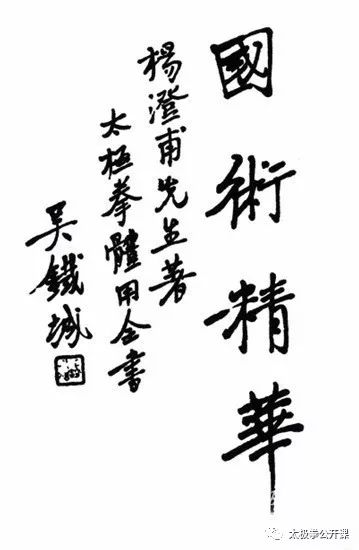 國術精華
楊澄甫先生著
太極拳體用全書
吳鐵城
太极拳公开课